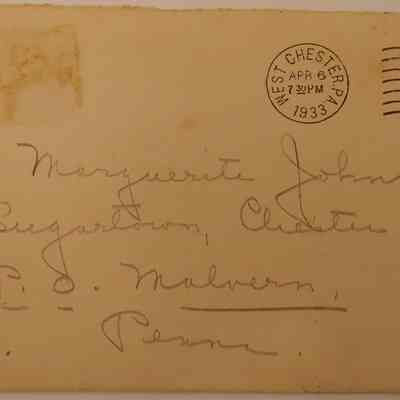 WEST CHESTER, PA.
APR 6
7 30 PM
1933
Marguerite John
Sugartown, Chester
P. O. Malvern,
Penna.